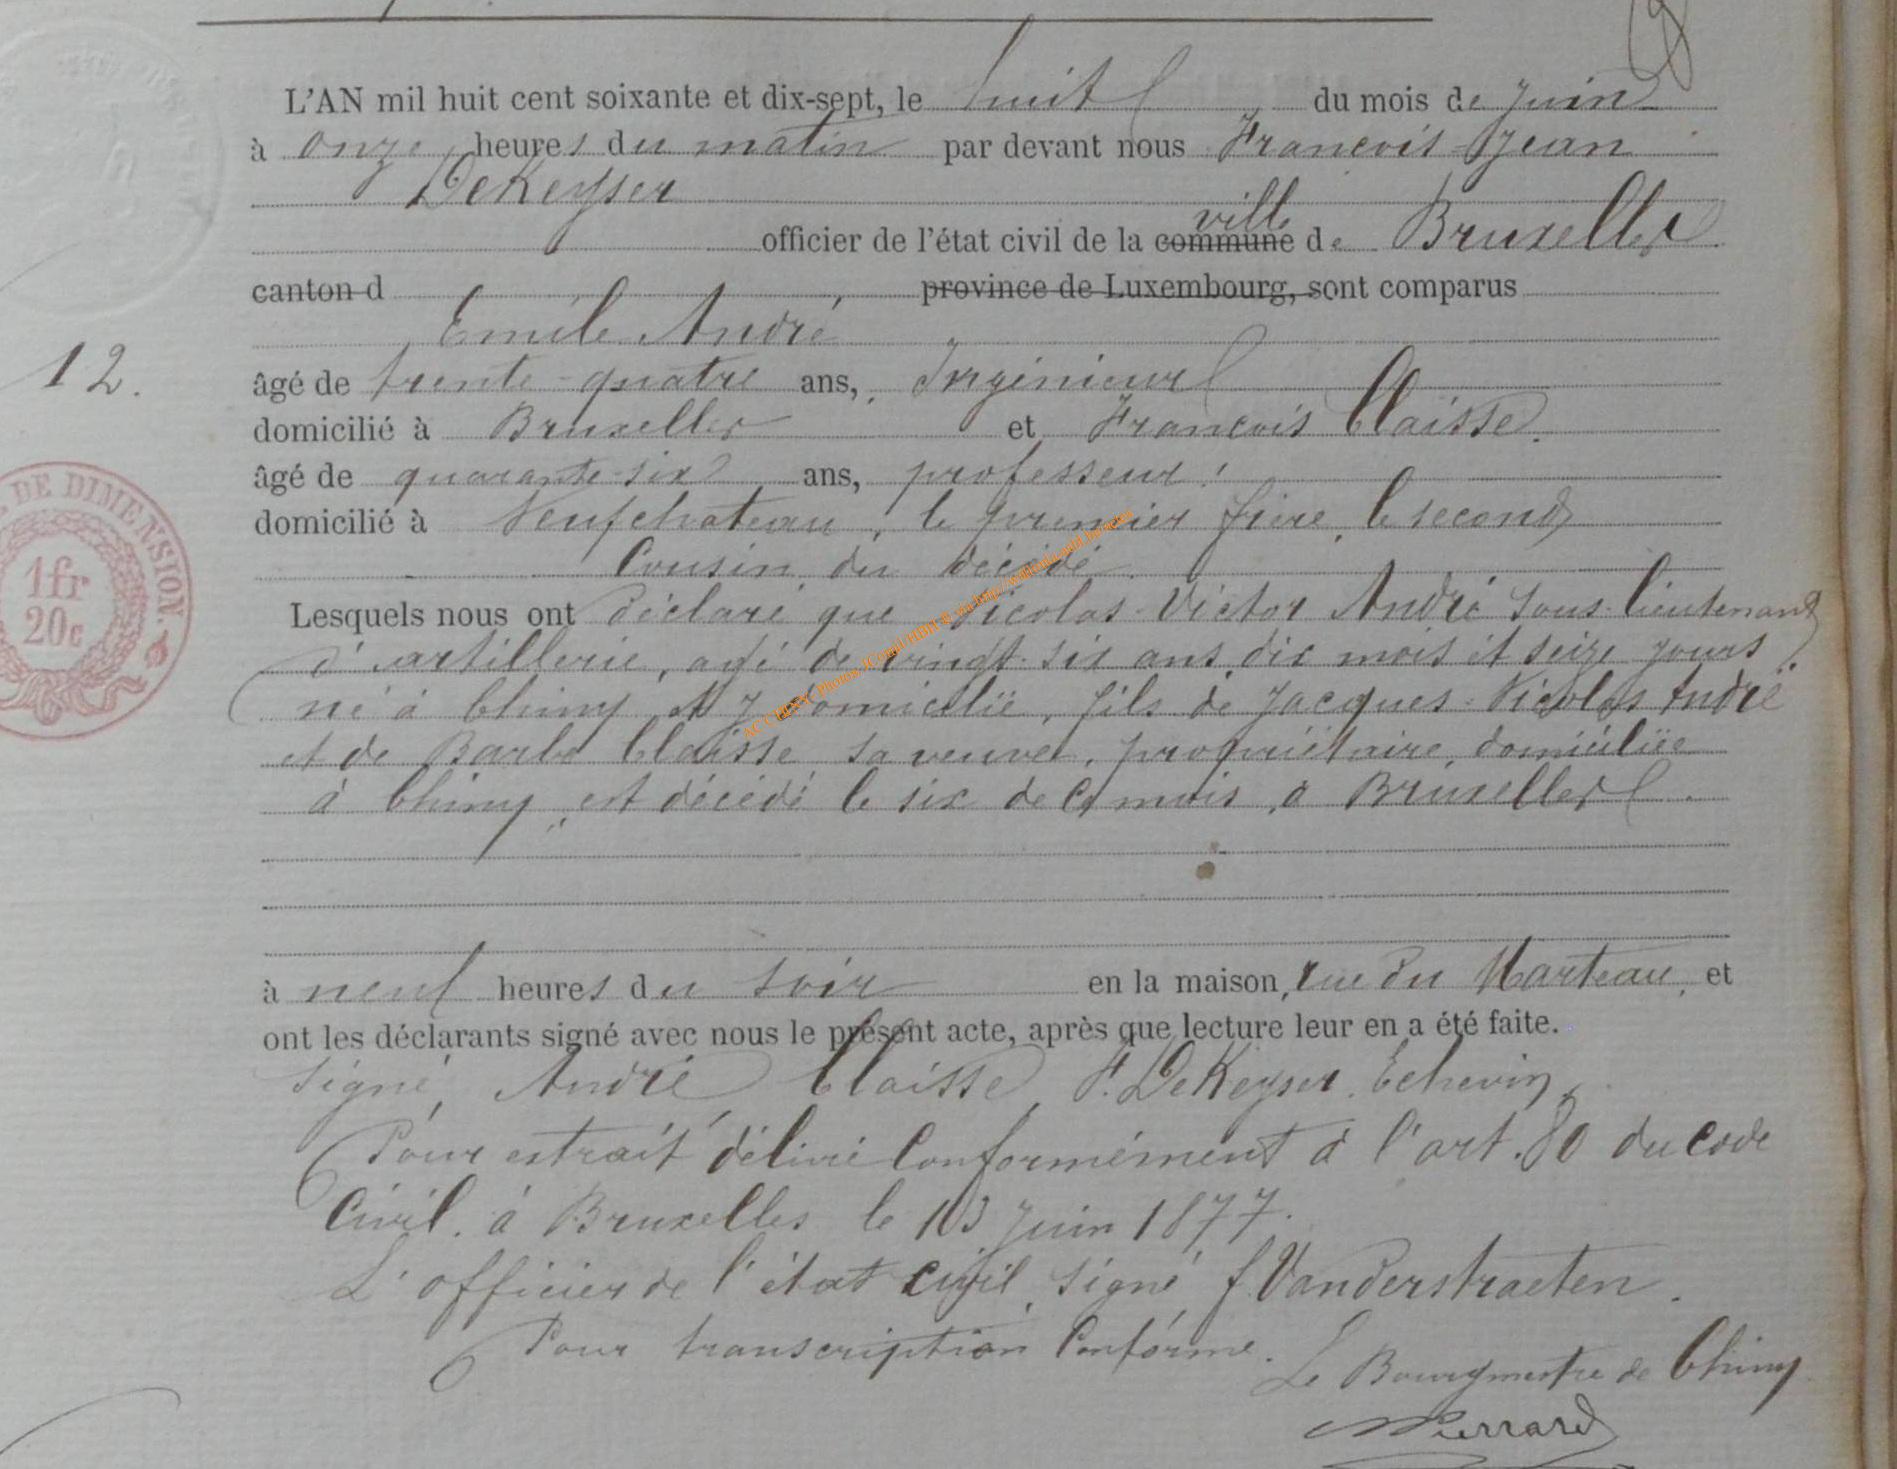 L'AN mil huit cent soixante et dix-sept, le huit du mois de juin
à onze heures du matin par devant nous François-Jean
DeKeyser
ville
officier de l'état civil de la commune de Bruxelles
canton d province de Luxembourg, sont comparus
Emile André
12.
âgé de trente-quatre ans, Ingénieur
domicilié à Bruxelles et François Claisse.
âgé de quarante-six ans, professeur
domicilié à Neufchateau, le premier frère, le second
Cousin du décédé
Lesquels nous ont déclaré que Nicolas-Victor André Sous-lieutenant
d'artillerie, agé de vingt-six ans dix mois et seize jours
né à Chiny et y domicilié, fils de Jacques-Nicolas André
et de Barbe Claisse sa veuve, propriétaire, domiciliée
à Chiny, est décédé le six de ce mois, à Bruxelles.
à neuf heures du soir en la maison, rue du Marteau, et
ont les déclarants signé avec nous le présent acte, après que lecture leur en a été faite.
signé, André Claisse, F. DeKeyser. Echevin,
Pour extrait délivré Conformément à l'art. 80 du code
Civil. à Bruxelles le 13 juin 1877.
L'officier de l'état civil, signé f. Vanderstraeten.
Pour transcription Conforme.
Le Bourgmestre de Chiny
Pierrard
DE DIMENSION.
1fr
20c
AC CHINY Photos: via http://